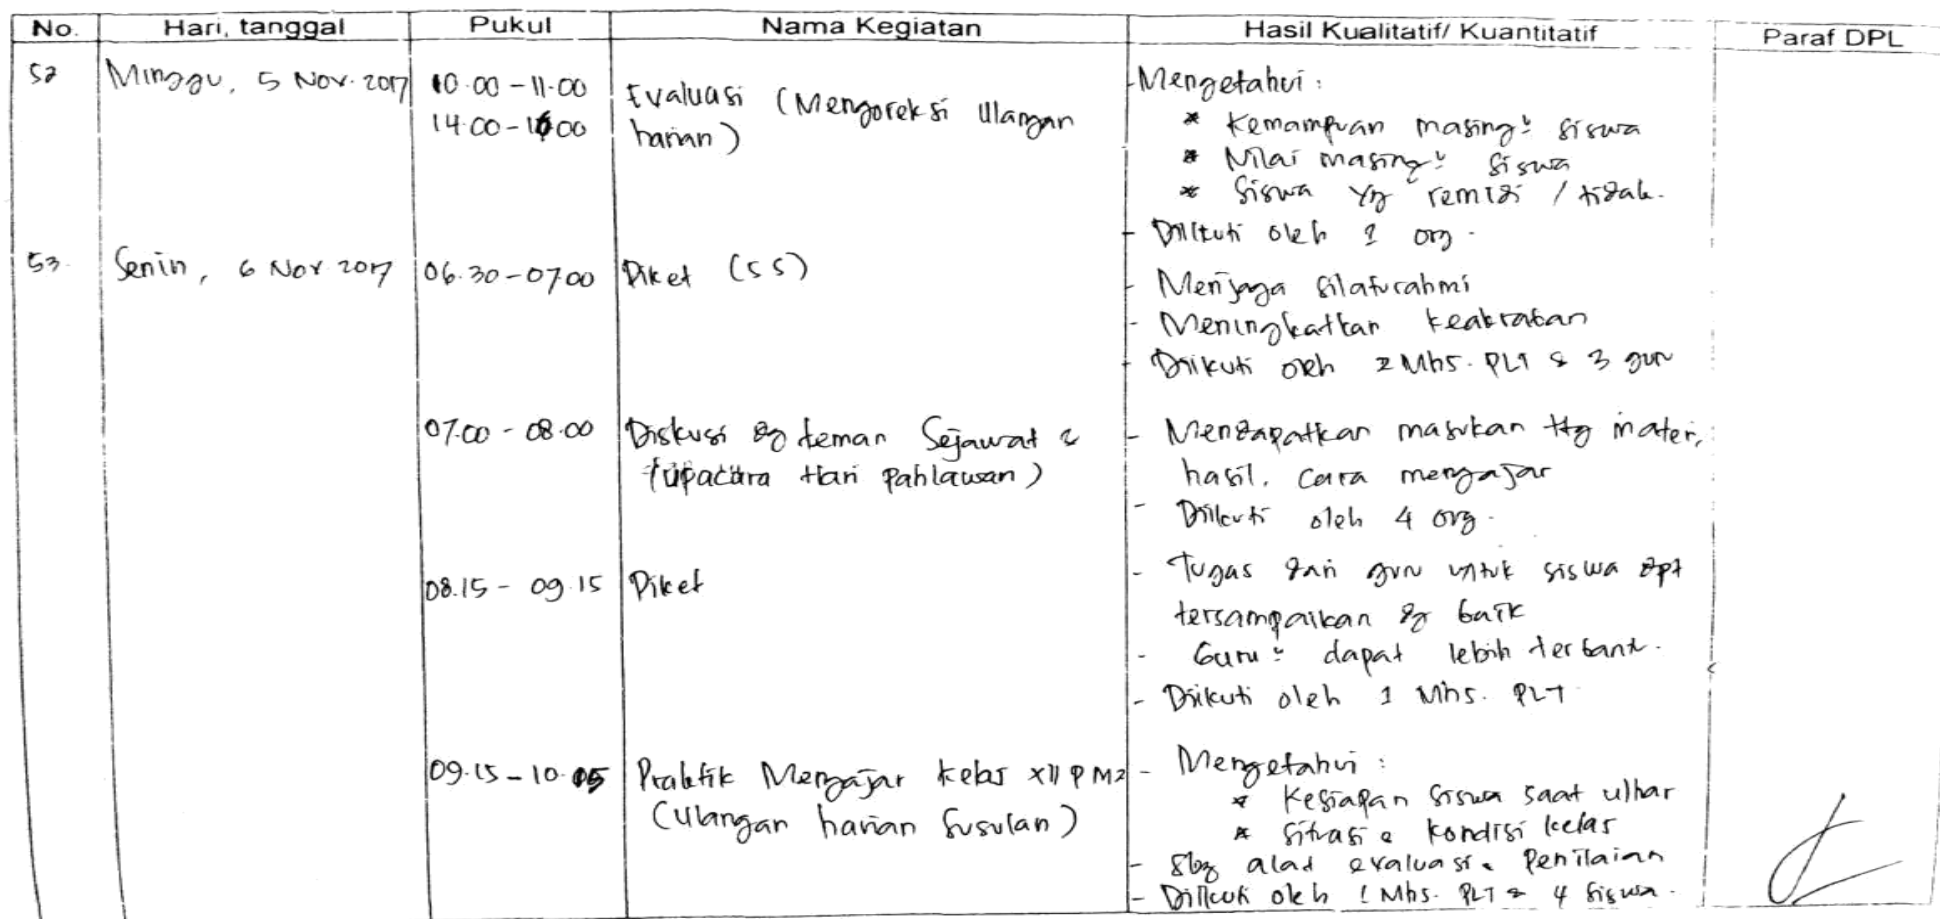 No. Hari, tanggal Pukul Nama Kegiatan Hasil Kualitatif/ Kuantitatif Paraf DPL
52 Minggu, 5 Nov. 2017 10.00 - 11.00 Evaluasi (Mengoreksi Ulangan - Mengetahui :
14.00 - 1600 harian) * Kemampuan masing² siswa
* Nilai masing² siswa
* Siswa yg remidi / tidak.
- Diikuti oleh 1 org.
53. Senin, 6 Nov 2017 06.30 - 07.00 Piket (5 S) - Menjaga silaturahmi
- Meningkatkan keakraban
- Diikuti oleh 2 Mhs. PLT & 3 guru
07.00 - 08.00 Diskusi dg teman Sejawat & - Mendapatkan masukan ttg materi,
(upacara Hari Pahlawan) hasil, cara mengajar
- Diikuti oleh 4 org.
08.15 - 09.15 Piket - Tugas dari guru untuk siswa dpt
tersampaikan dg baik
- Guru² dapat lebih terbantu.
- Diikuti oleh 1 Mhs. PLT
09.15 - 10.05 Praktik Mengajar kelas XII PM2 - Mengetahui :
(Ulangan harian susulan) * Kesiapan siswa saat ulhar
* Situasi & kondisi kelas
- Sbg alat evaluasi & Penilaian
- Diikuti oleh 1 Mhs. PLT & 4 siswa.